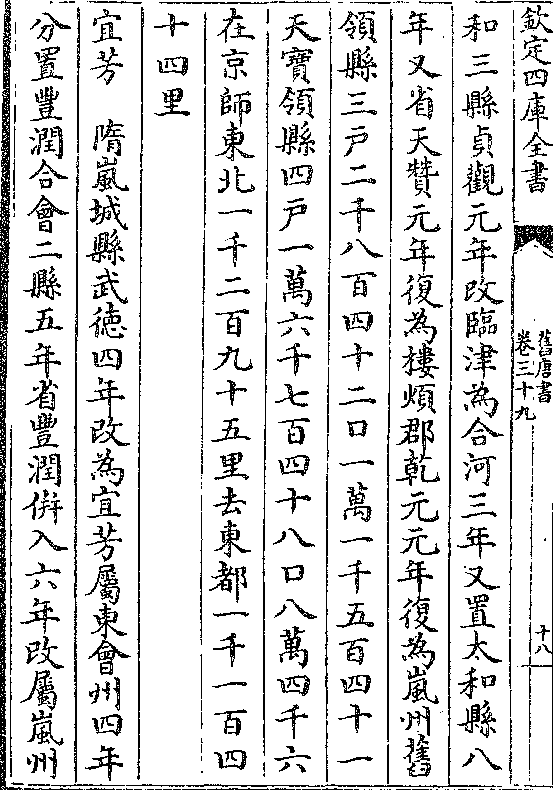 欽定四庫全書
舊唐書
卷三十九
十八
和三縣貞觀元年改臨津為合河三年又置太和縣八
年又省天贊元年復為樓煩郡乾元元年復為嵐州舊
領縣三戶二千八百四十二口一萬一千五百四十一
天寶領縣四戶一萬六千七百四十八口八萬四千六
在京師東北一千二百九十五里去東都一千一百四
十四里
宜芳　隋嵐城縣武德四年改為宜芳屬東會州四年
分置豐潤合會二縣五年省豐潤併入六年改屬嵐州